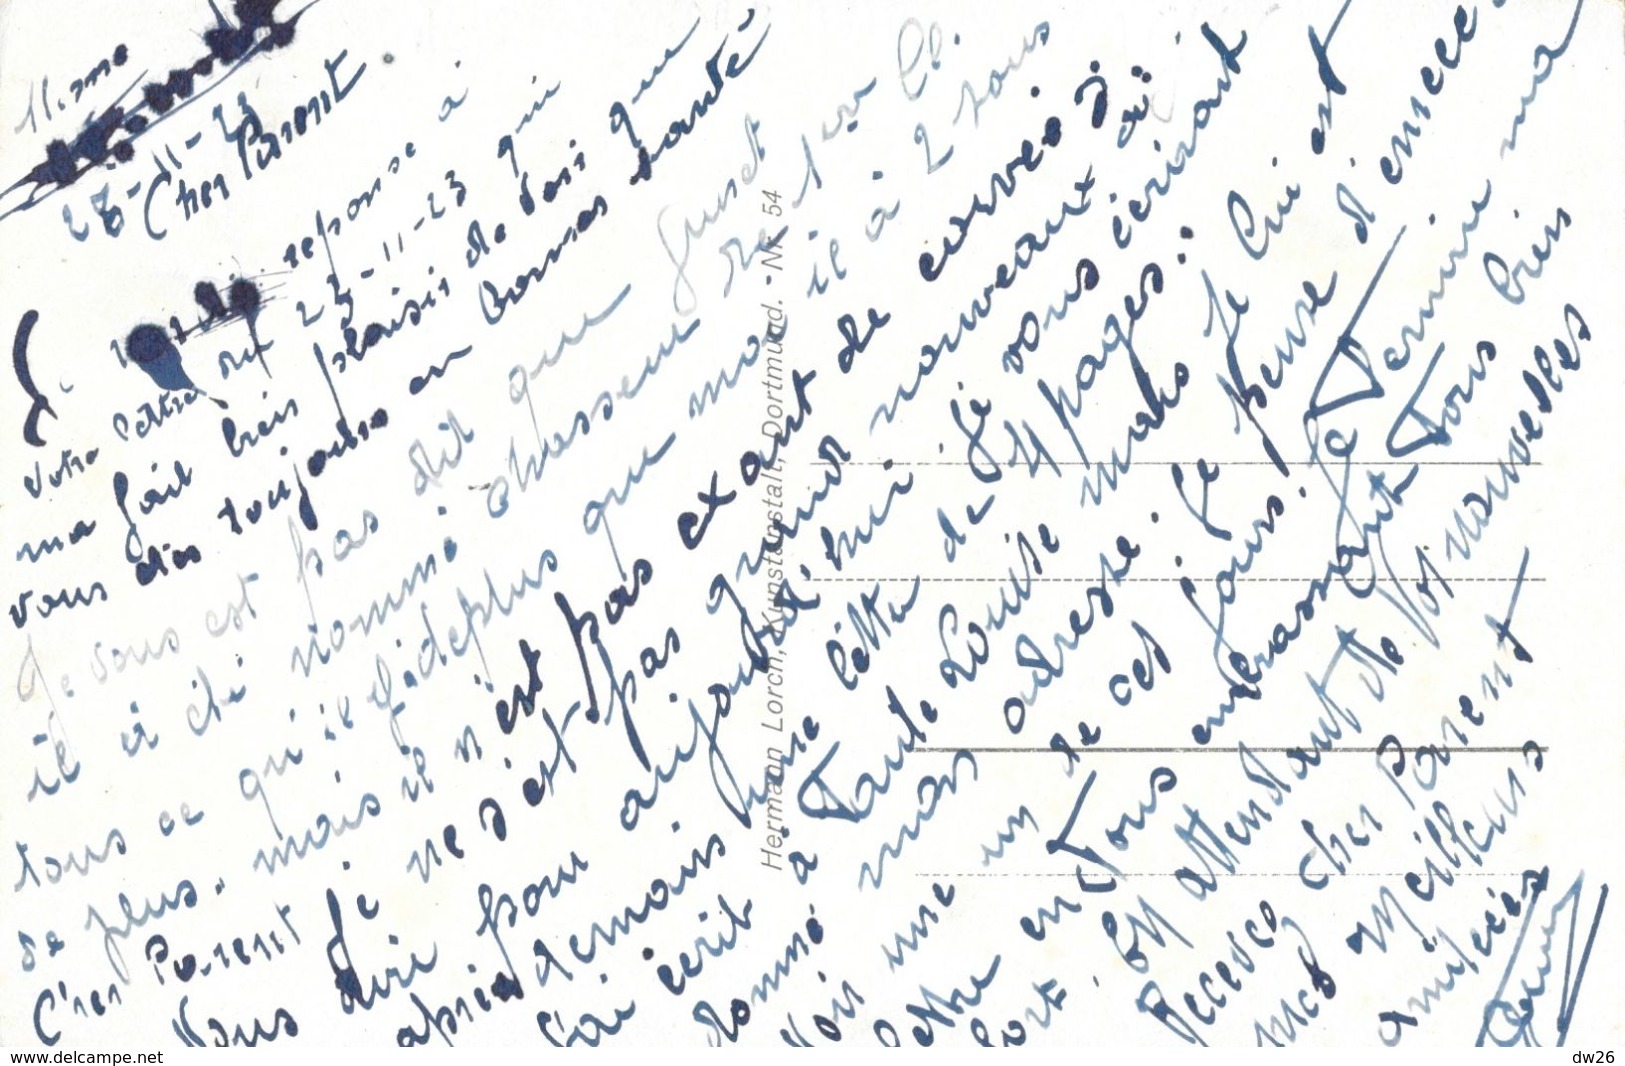 28-11-23
Cher Parent
reponse à
votre lettre du 23-11-23 qui
ma fait bien plaisir de voir que
vous êtes toujours en bonne santé
Je vous est pas dit que
il à été nommé chasseur de 1ere Cl.
tous ce qu'il à deplus que moi il à 2 sous
de plus. mais il n'est pas exant de corvés
Cher Parent Je ne s'est pas quoi nouveaux
vous dire pour aujourd'hui. Je vous écrirait
après demains une lettre de 4 pages.
J'ai écrit à Tante Louise mais Je lui est
donné mon adresse. Je pense d'en
voir une un de ces Jours. Je Termine ma
lettre en vous embrassant Tous bien
fort. En attendant de vos nouvelles
Recevez cher Parent
mes meilleurs
amitiées
Hermann Lorch, Kunstanstalt, Dortmund. - Nr. 54
www.delcampe.net
dw26